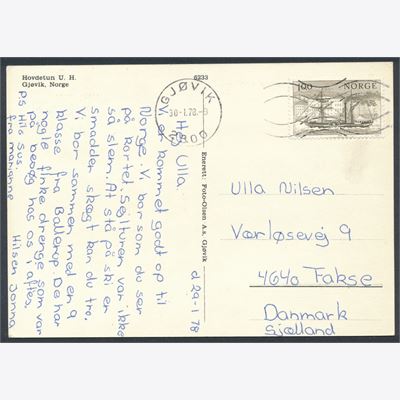 Hovdetun U. H.
Gjøvik, Norge
6233
GJØVIK
30-1.78.-9
2800
100 NORGE
d 29-1 78
Hej Ulla
Vi er kommet godt op til
Norge. Vi bor som du ser
på kortet. Sejlturen var ikke
så slem. At stå på ski er
smadder skægt kan du tro.
Vi bor sammen med en 9
klasse fra Ballerup. De har
nogle finke drenge som var
på besøg hos os i aften.
Hilsen Janna
PS Hils Susi
fra marianne
Enerett: Foto-Olsen A.s, Gjøvik
Ulla Nilsen
Værløsevej 9
4640 Fakse
Danmark
Sjælland